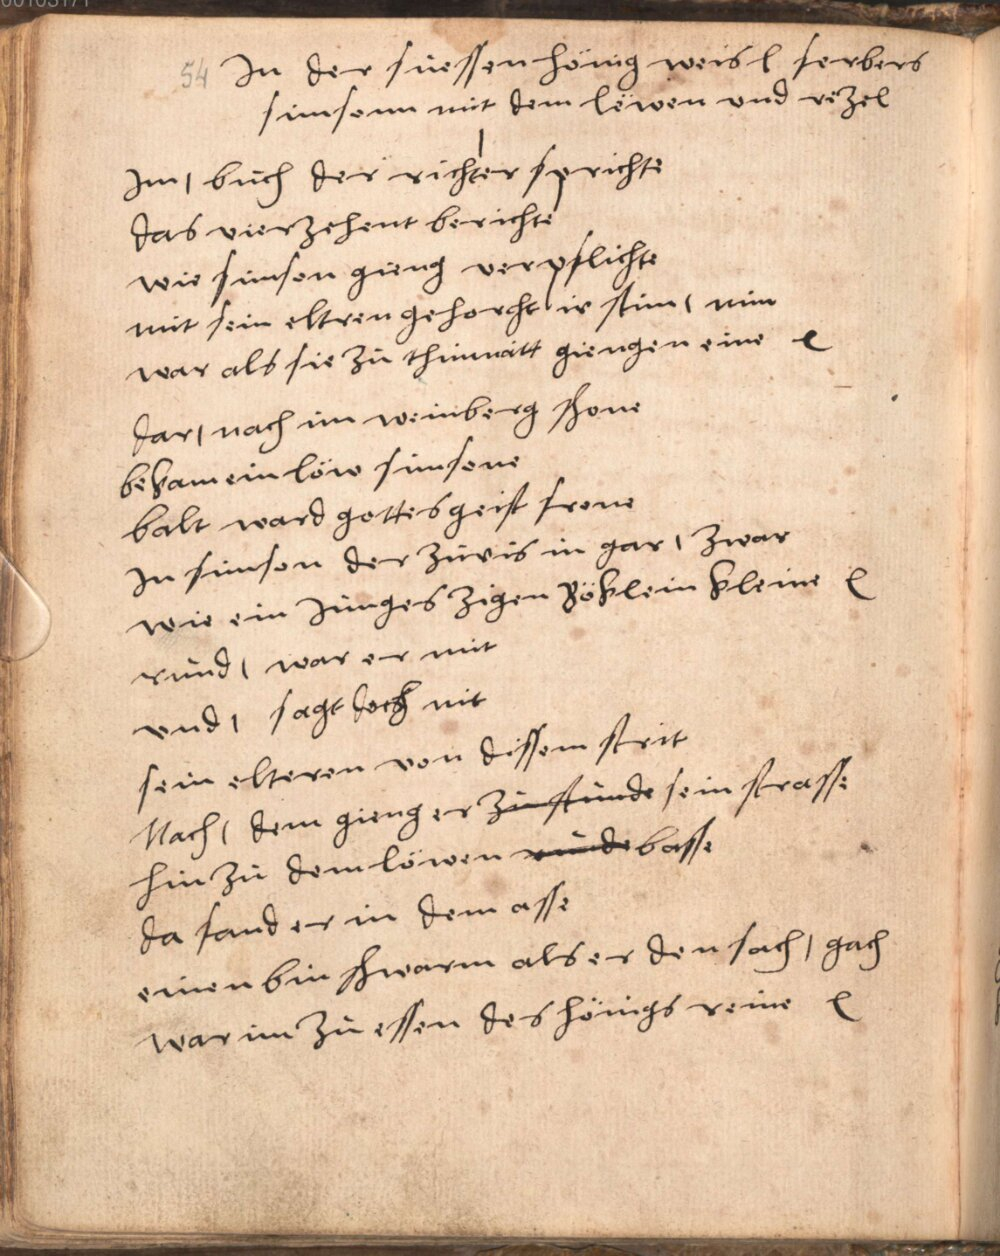 00105171
54 In der süessen hönig weis l ferbers
simson mit dem löwen und rëzel
Im, büch der richter sprichte
das vierzehent berichte
wie simson gieng verpflichte
mit sein eltren gehorcht ir stim, nim
war als sie zü thimnatt giengen eine l
dar, nach im weinberg schone
bekam ein löw simsone
balt ward gottes geist frone
In simson der züris in gar, zwar
wie ein Jünges zigen Böklein kleine l
ründ, war er mit
vnd, sagt doch nit
sein elteren von dissem strit
Nach, dem gieng er zü stünde sein strasse
hin zü dem löwen ründe basse
da fand er in dem asse
einen bin schwarm als er den sach, gach
war im zü essen des hönigs reine l